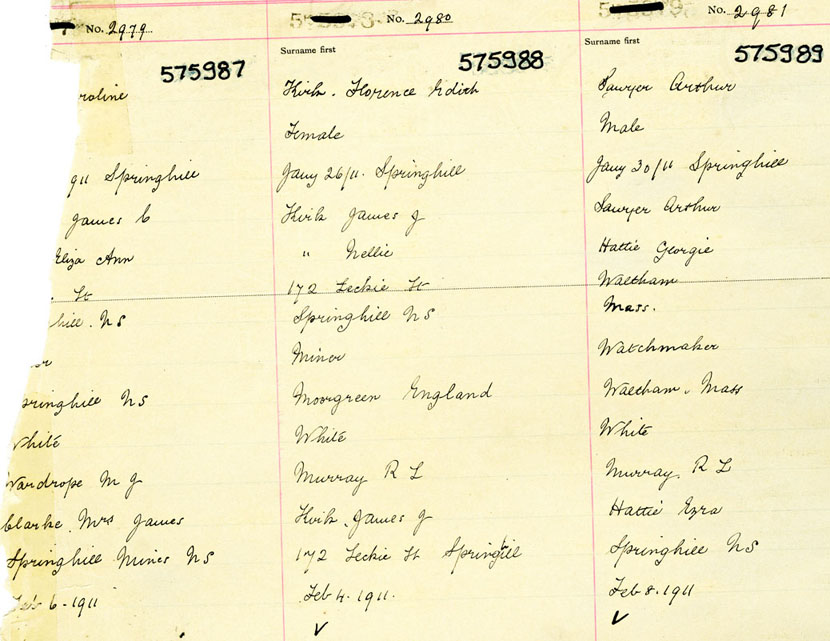 No. 2979
575987
roline
911 Springhill
James C
Eliza Ann
. St
hill. NS
or
pringhill NS
White
Wardrope M J
Clarke Mrs James
Springhill Mines NS
Feb 6-1911
No. 2980
Surname first
575988
Kirk. Florence Edith
Female
Jany 26/11. Springhill
Kirk James J
" Nellie
172 Leckie St
Springhill NS
Minor
Moorgreen England
White
Murray R L
Kirk James J
172 Leckie St Springhill
Feb 4. 1911.
No. 2981
Surname first
575989
Sawyer Arthur
Male
Jany 30/11 Springhill
Sawyer Arthur
Hattie Georgie
Waltham
Mass.
Watchmaker
Waltham. Mass
White
Murray R L
Hattie Ezra
Springhill NS
Feb 8. 1911